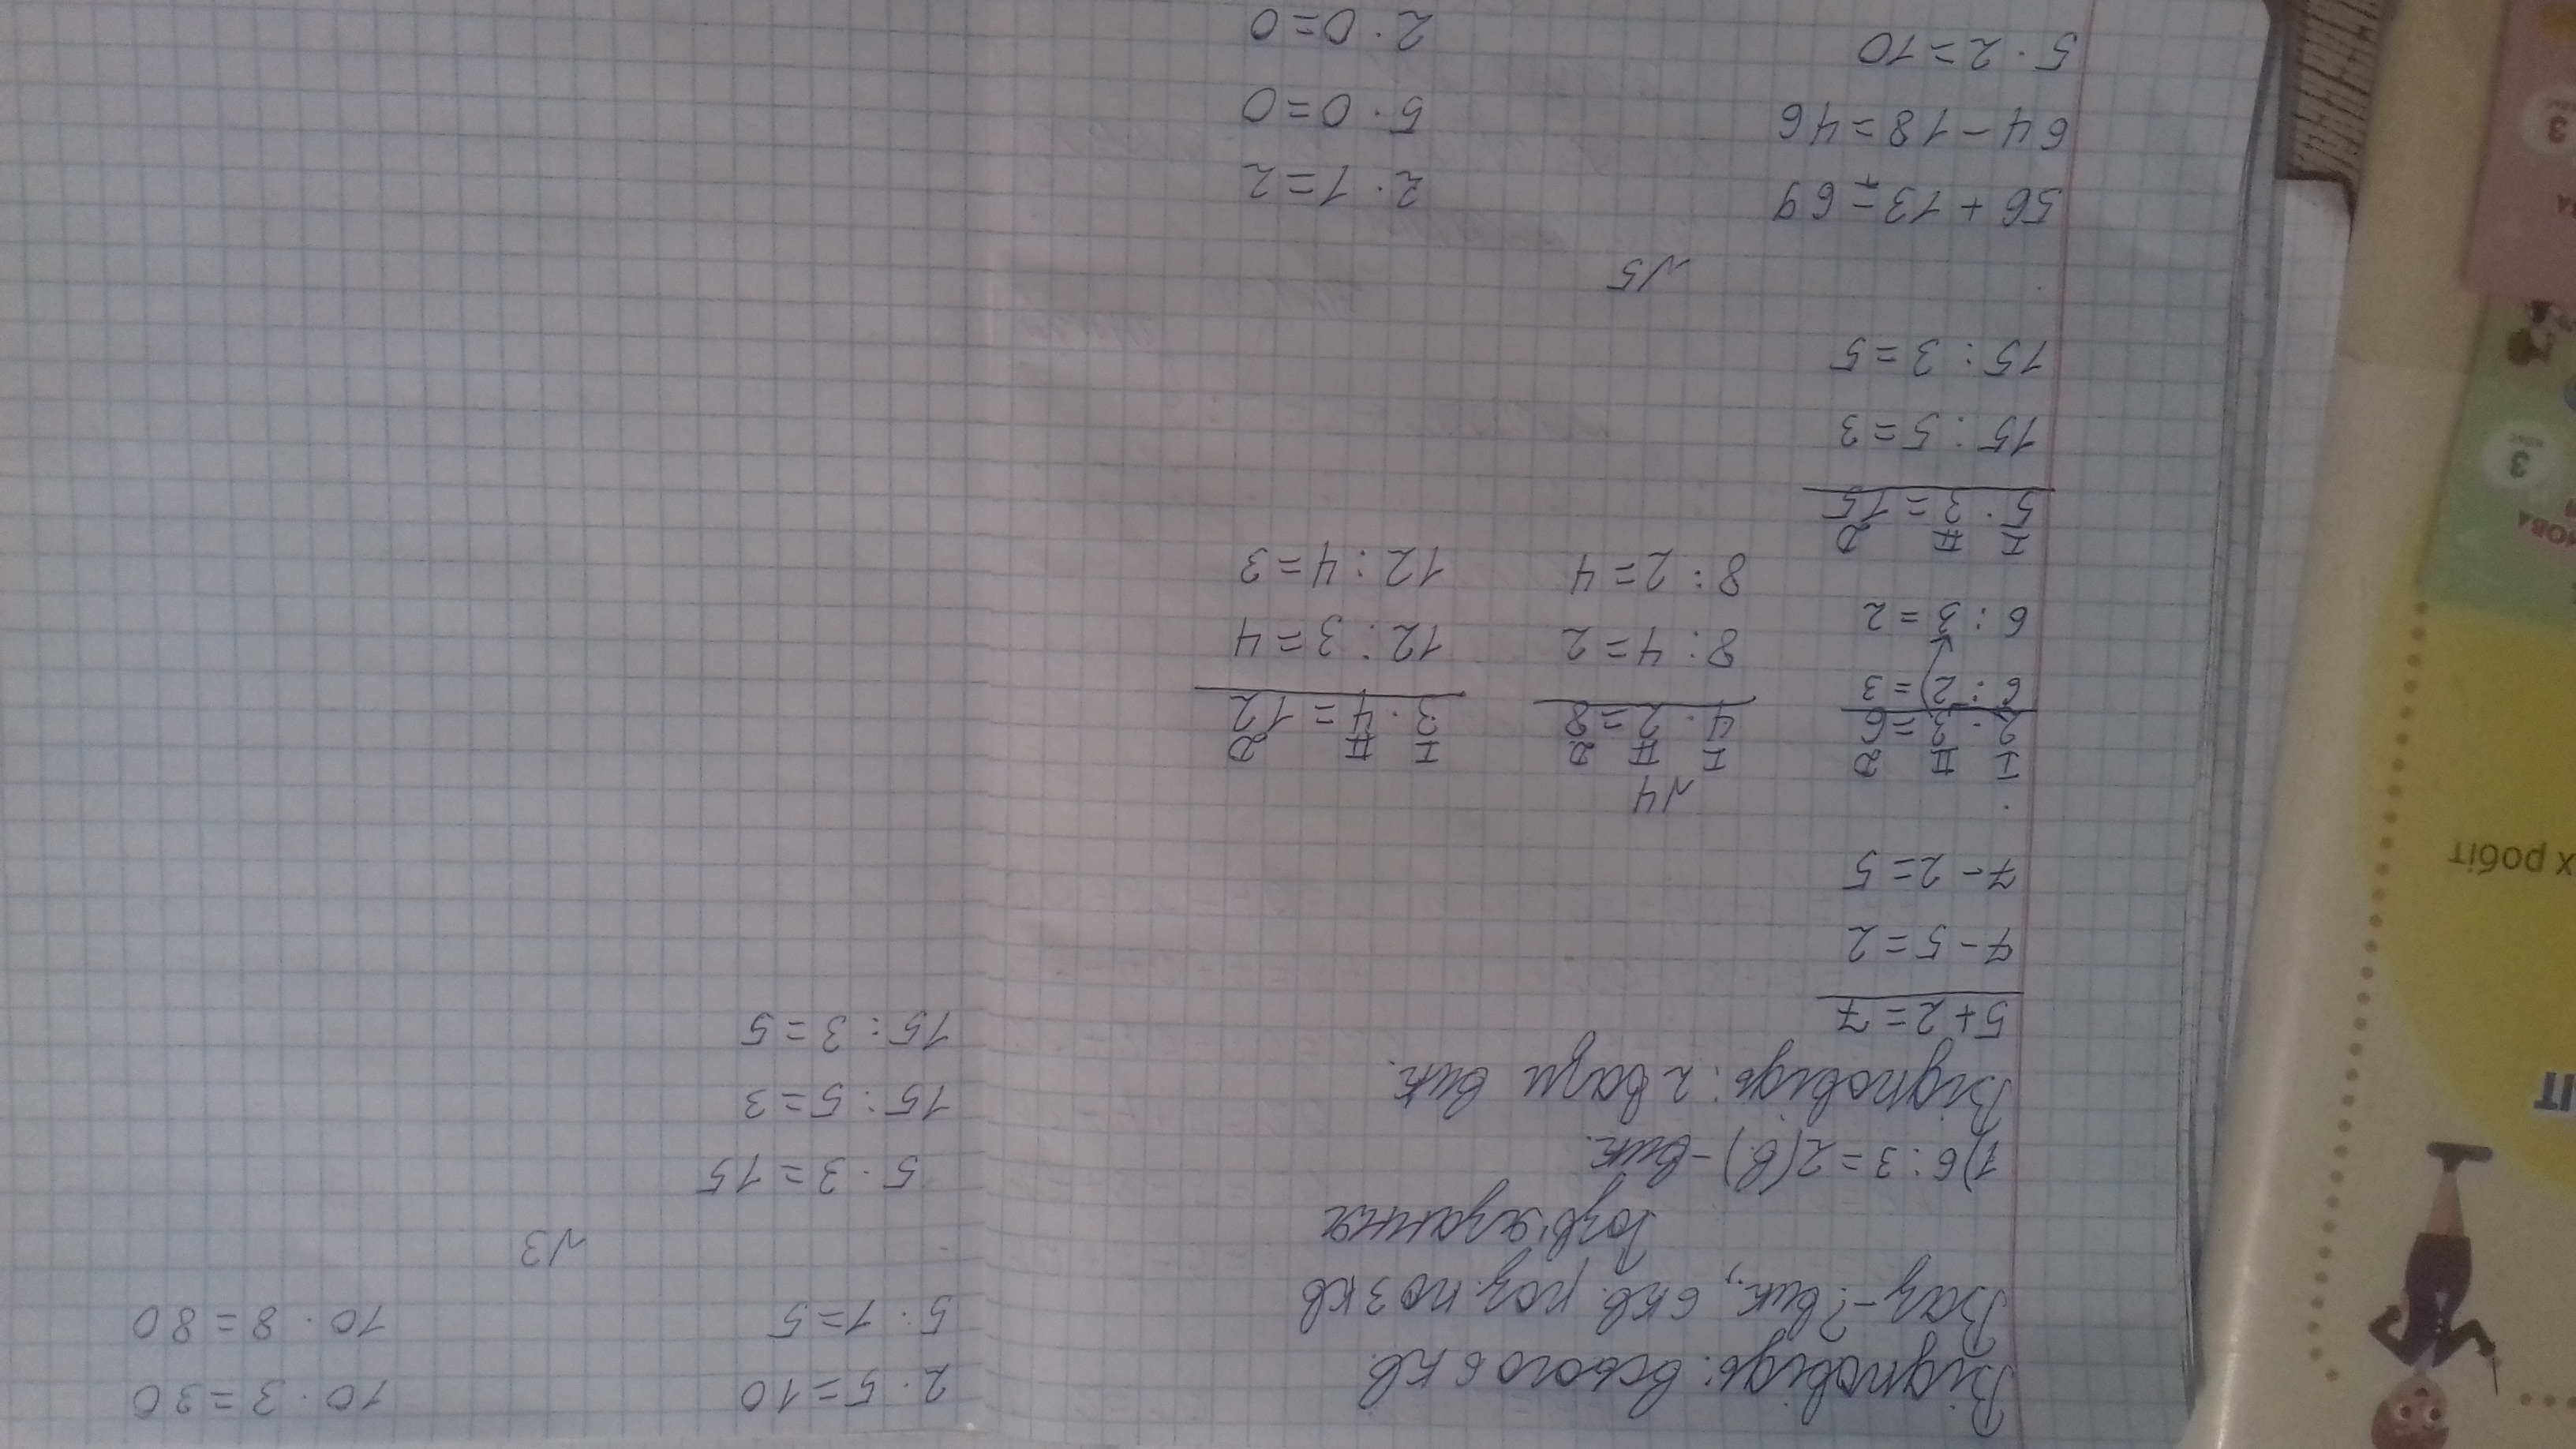 Відповідь: всього 6 кв.
Ваз-? вик., 6 кв. роз. по 3 кв
Розв'язання
1) 6 : 3 = 2 (в.) - вик.
Відповідь: 2 вази вик.
5 + 2 = 7
7 - 5 = 2
7 - 2 = 5
№4
I II Д I II Д I II Д
2 · 3 = 6 4 · 2 = 8 3 · 4 = 12
6 : 2 = 3 8 : 4 = 2 12 : 3 = 4
6 : 3 = 2 8 : 2 = 4 12 : 4 = 3
I II Д
5 · 3 = 15
15 : 5 = 3
15 : 3 = 5
№5
56 + 13 = 69 2 · 1 = 2
64 - 18 = 46 5 · 0 = 0
5 · 2 = 10 2 · 0 = 0
2 · 5 = 10 10 · 3 = 30
5 · 1 = 5 10 · 8 = 80
№3
5 · 3 = 15
15 : 5 = 3
15 : 3 = 5
ІТ
х робіт
НОВА
3
3